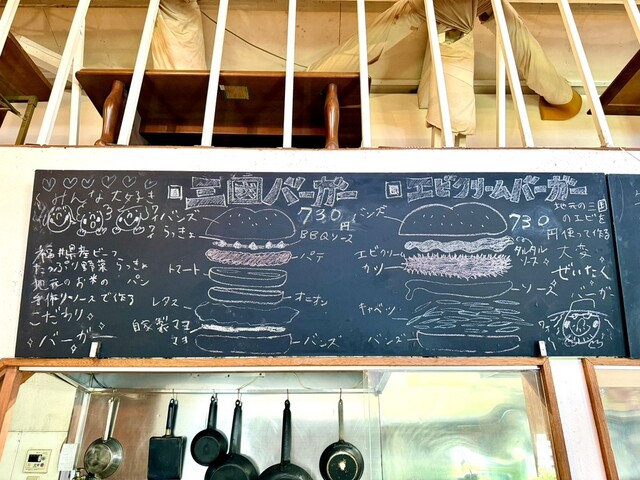 みんな大好き
福井県産ビーフ
たっぷり野菜 らっきょ
地元のお米の パン
手作りソースで作る
こだわり
バーガー
三國バーガー
730円
バンズ
らっきょ
BBQソース
パテ
トマト
オニオン
レタス
自家製マヨ
バンズ
エビクリームバーガー
730円
バンズ
エビクリーム
カツ
タルタル
ソース
ソース
キャベツ
バンズ
地元の三国
のエビを
使って作る
大変
ぜいたく
バーガー